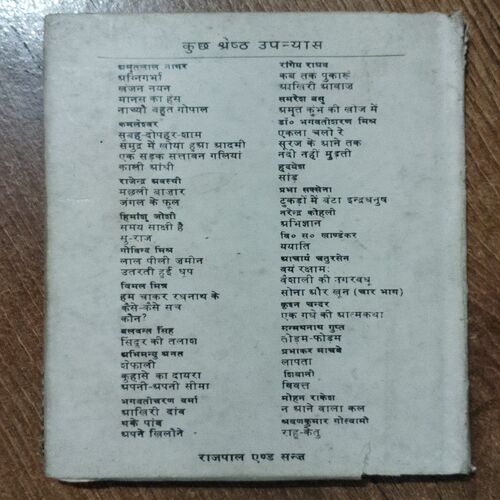 कुछ श्रेष्ठ उपन्यास
अमृतलाल नागर
अग्निगर्भा
खंजन नयन
मानस का हंस
नाच्यौ बहुत गोपाल
कमलेश्वर
सुबह-दोपहर-शाम
समुद्र में खोया हुआ आदमी
एक सड़क सत्तावन गलियां
काली आंधी
राजेन्द्र अवस्थी
मछली बाज़ार
जंगल के फूल
हिमांशु जोशी
समय साक्षी है
सु-राज
गोविन्द मिश्र
लाल पीली ज़मीन
उतरती हुई धूप
विमल मित्र
हम चाकर रघुनाथ के
कैसे-कैसे सच
कौन?
बलवन्त सिंह
सिंदूर की तलाश
अभिमन्यु अनत
शेफाली
कुहासे का दायरा
अपनी-अपनी सीमा
भगवतीचरण वर्मा
आखिरी दांव
थके पांव
अपने खिलौने
रांगेय राघव
कब तक पुकारूं
आखिरी आवाज़
समरेश बसु
अमृत कुंभ की खोज में
डॉ० भगवतीशरण मिश्र
एकला चलो रे
सूरज के आने तक
नदी नहीं मुड़ती
हृदयेश
सांड
प्रभा सक्सेना
टुकड़ों में बंटा इन्द्रधनुष
नरेन्द्र कोहली
अभिज्ञान
वि० स० खाण्डेकर
ययाति
आचार्य चतुरसेन
वयं रक्षामः
वैशाली की नगरवधू
सोना और खून (चार भाग)
कृश्न चन्दर
एक गधे की आत्मकथा
मन्मथनाथ गुप्त
तोड़म-फोड़म
प्रभाकर माचवे
लापता
शिवानी
विवर्त्त
मोहन राकेश
न आने वाला कल
श्रवणकुमार गोस्वामी
राहु-केतु
राजपाल एण्ड सन्ज़